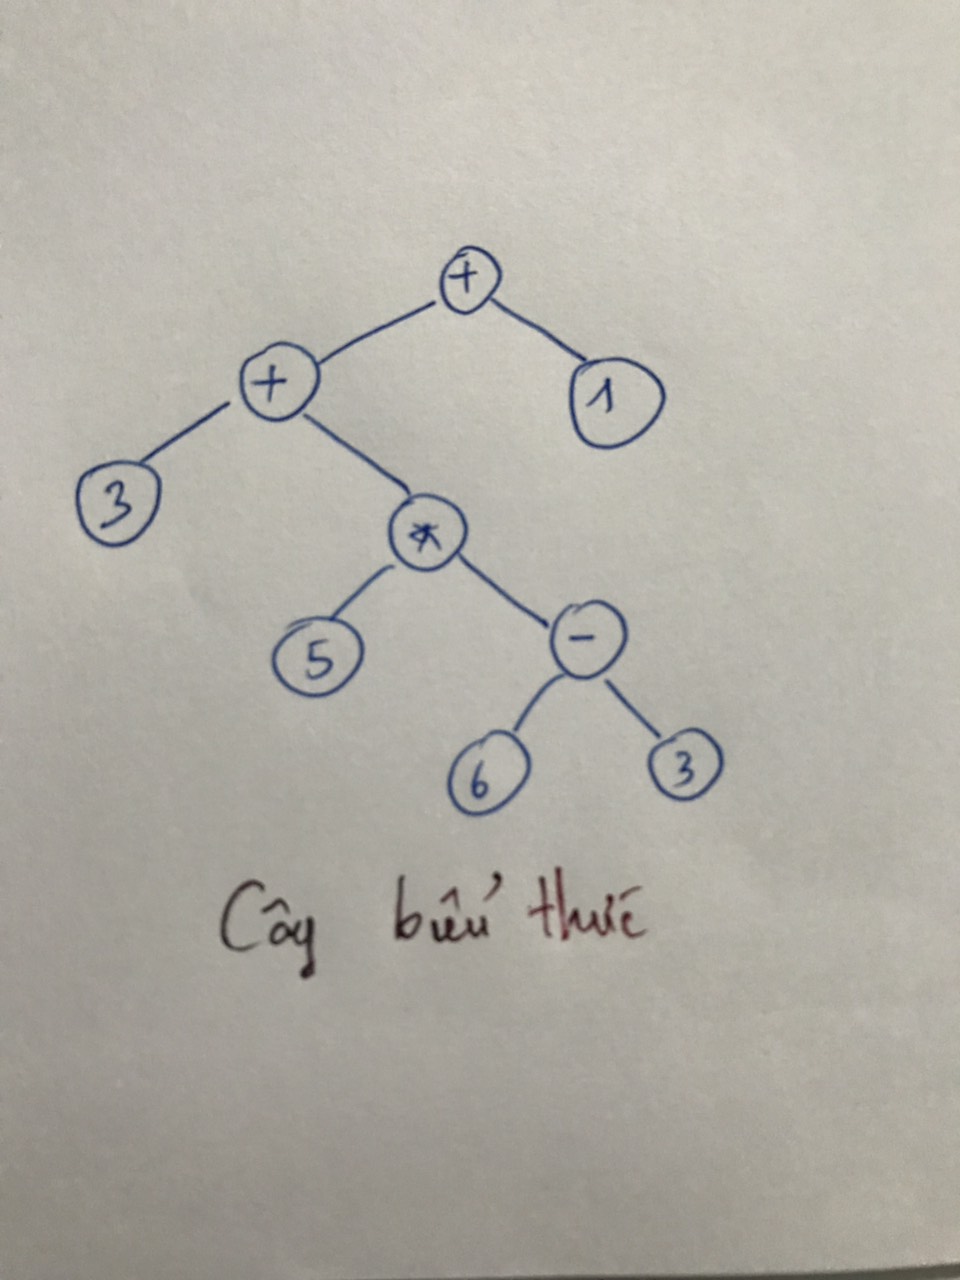 +
+ 1
3
*
5 -
6 3
Cây biểu thức